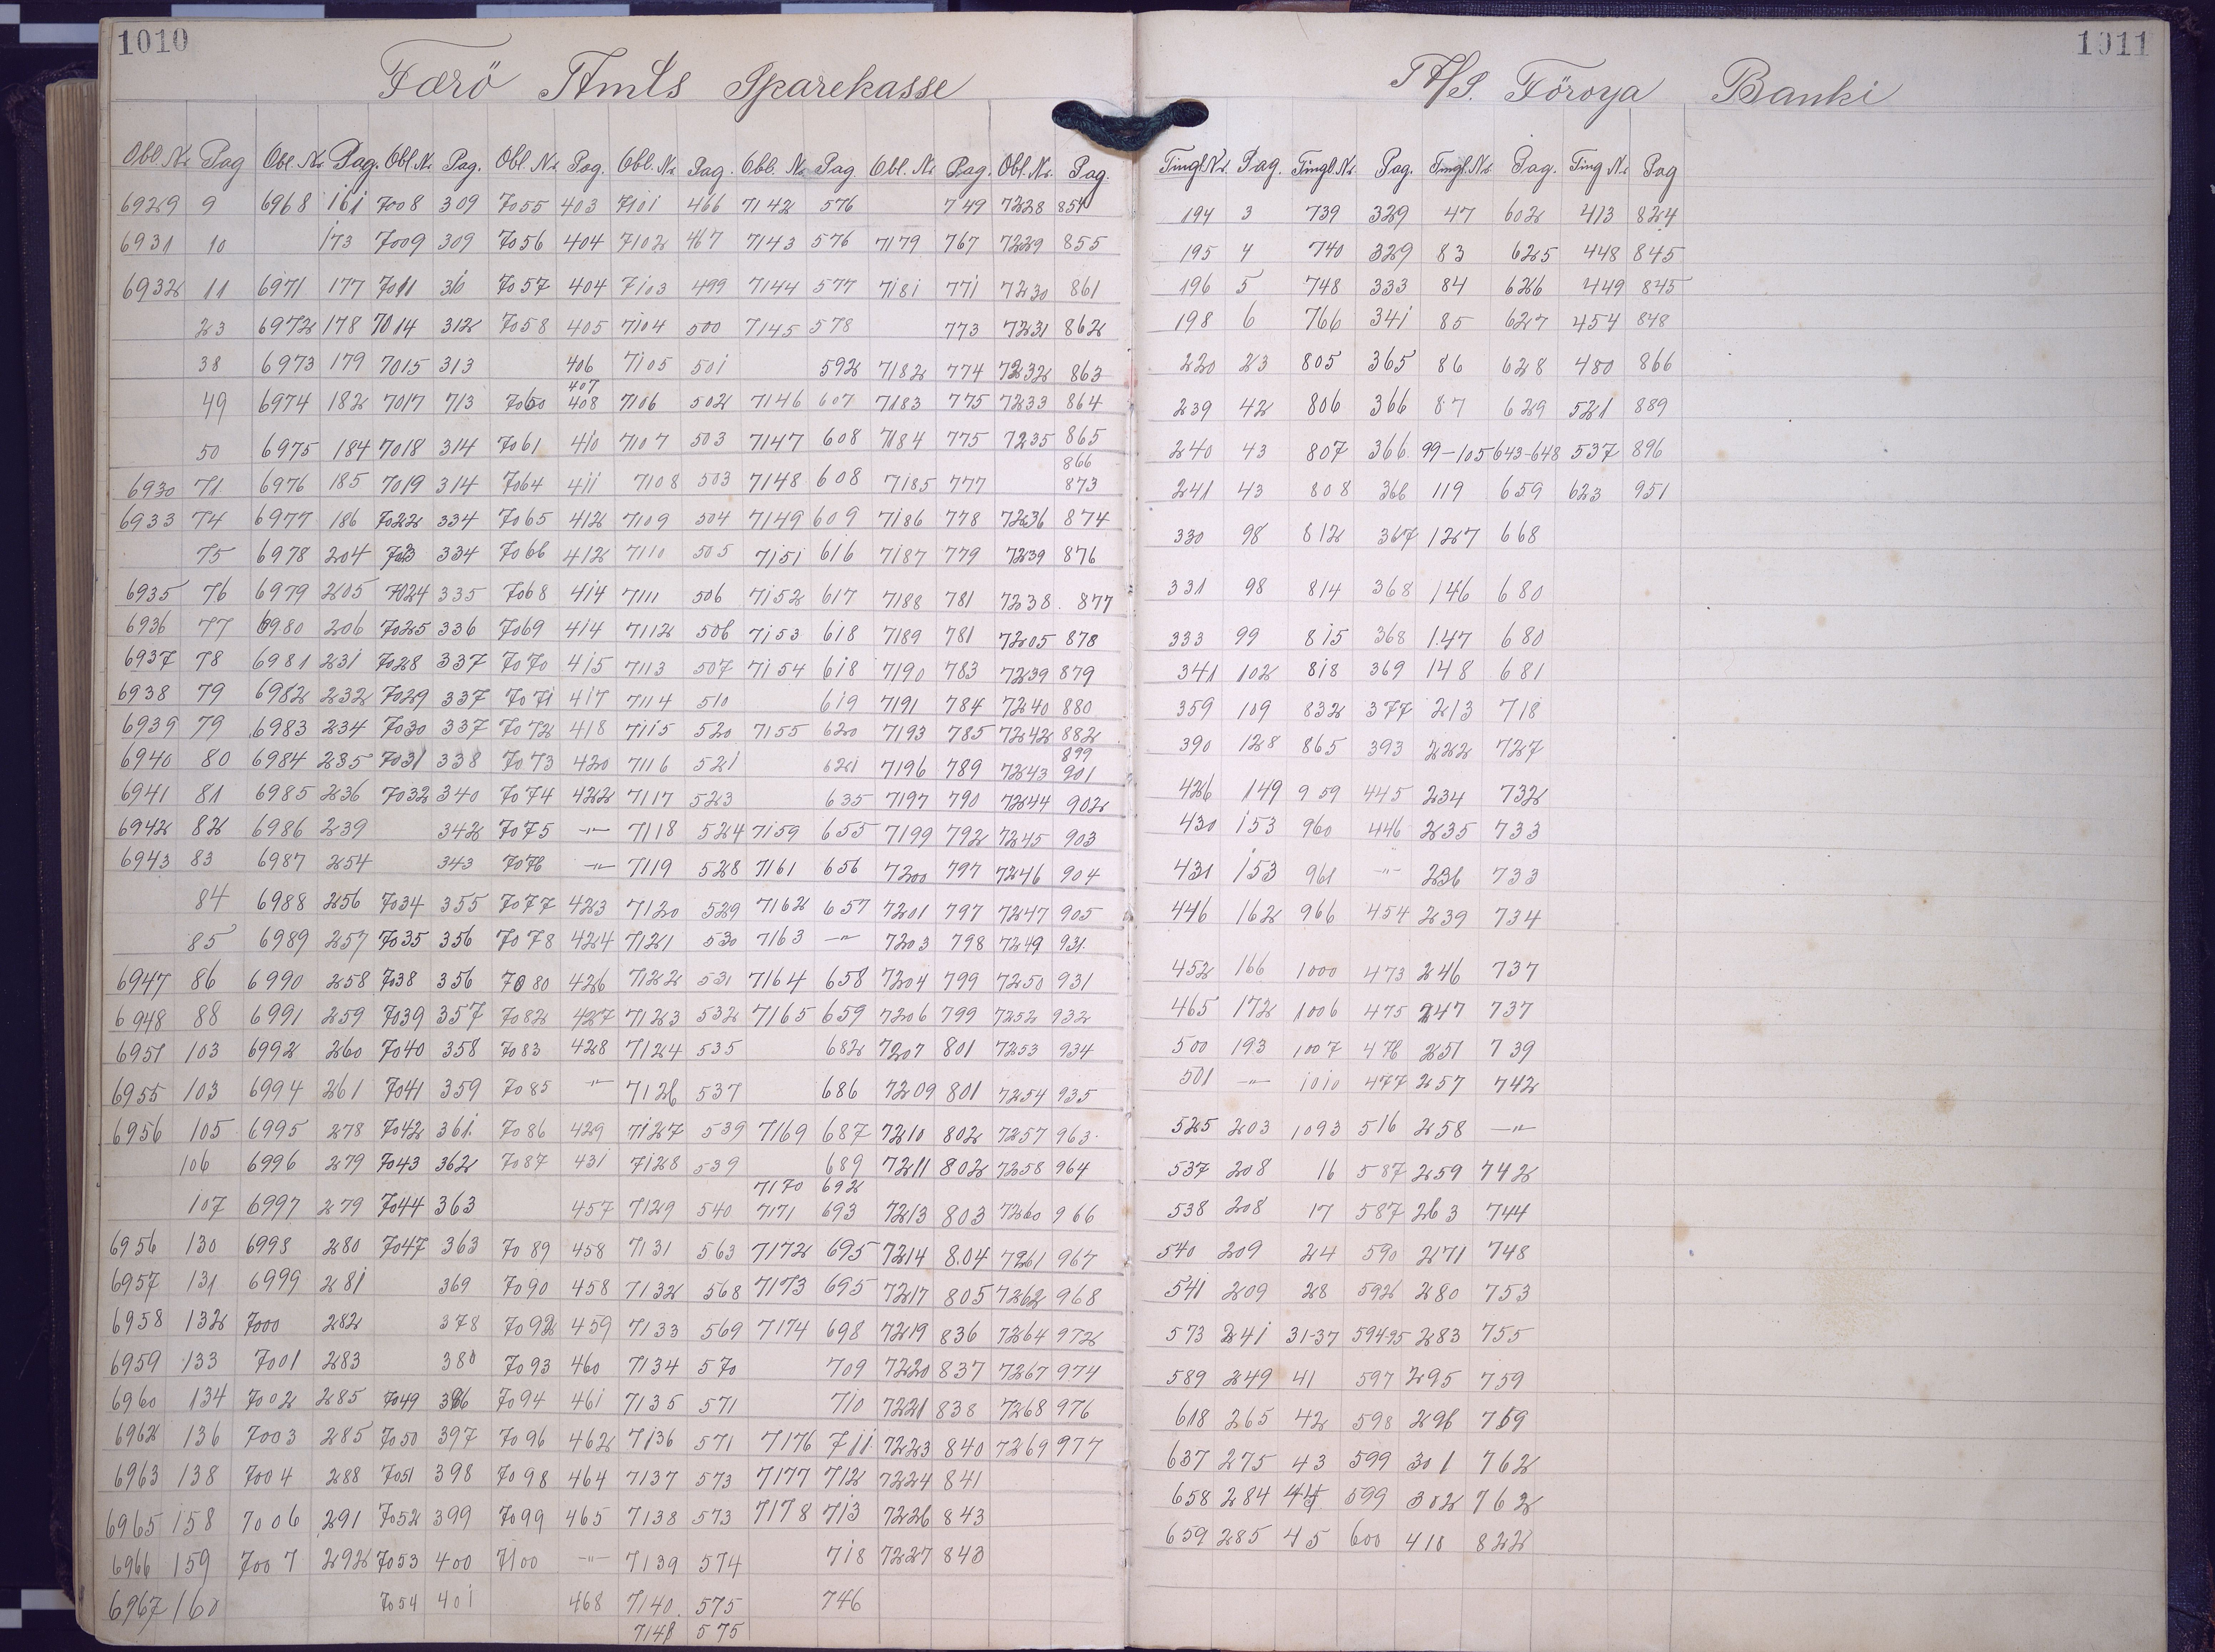 1010
Færö Amts Sparekasse
Obl. Nr. Pag Obl. Nr. Pag. Obl. Nr. Pag. Obl. Nr. Pag. Obl. Nr. Pag. Obl. Nr. Pag. Obl. Nr. Pag. Obl. Nr. Pag.
6929 9 6968 161 7008 309 7055 403 7101 466 7142 576 749 7228 854
6931 10 173 7009 309 7056 404 7102 467 7143 576 7179 767 7229 855
6932 11 6971 177 7011 310 7057 404 7103 499 7144 577 7181 771 7230 861
23 6972 178 7014 312 7058 405 7104 500 7145 578 773 7231 862
38 6973 179 7015 313 406 7105 501 592 7182 774 7232 863
407
49 6974 182 7017 713 7060 408 7106 502 7146 607 7183 775 7233 864
50 6975 184 7018 314 7061 410 7107 503 7147 608 7184 775 7235 865
866
6930 71 6976 185 7019 314 7064 411 7108 503 7148 608 7185 777 873
6933 74 6977 186 7022 334 7065 412 7109 504 7149 609 7186 778 7236 874
75 6978 204 7023 334 7066 412 7110 505 7151 616 7187 779 7239 876
6935 76 6979 205 7024 335 7068 414 7111 506 7152 617 7188 781 7238 877
6936 77 6980 206 7025 336 7069 414 7112 506 7153 618 7189 781 7205 878
6937 78 6981 231 7028 337 7070 415 7113 507 7154 618 7190 783 7239 879
6938 79 6982 232 7029 337 7071 417 7114 510 619 7191 784 7240 880
6939 79 6983 234 7030 337 7072 418 7115 520 7155 620 7193 785 7242 882
899
6940 80 6984 235 7031 338 7073 420 7116 521 621 7196 789 7243 901
6941 81 6985 236 7032 340 7074 422 7117 523 635 7197 790 7244 902
6942 82 6986 239 342 7075 -"- 7118 524 7159 655 7199 792 7245 903
6943 83 6987 254 343 7076 -"- 7119 528 7161 656 7200 797 7246 904
84 6988 256 7034 355 7077 423 7120 529 7162 657 7201 797 7247 905
85 6989 257 7035 356 7078 424 7121 530 7163 -"- 7203 798 7249 931.
6947 86 6990 258 7038 356 7080 426 7122 531 7164 658 7204 799 7250 931
6948 88 6991 259 7039 357 7082 427 7123 532 7165 659 7206 799 7252 932
6951 103 6992 260 7040 358 7083 428 7124 535 682 7207 801 7253 934
6955 103 6994 261 7041 359 7085 -"- 7126 537 686 7209 801 7254 935
6956 105 6995 278 7042 361. 7086 429 7127 539 7169 687 7210 802 7257 963.
106 6996 279 7043 362 7087 431 7128 539 689 7211 802 7258 964
7170 692
107 6997 279 7044 363 457 7129 540 7171 693 7213 803 7260 966
6956 130 6998 280 7047 363 7089 458 7131 563 7172 695 7214 804 7261 967
6957 131 6999 281 369 7090 458 7132 568 7173 695 7217 805 7262 968
6958 132 7000 282 378 7092 459 7133 569 7174 698 7219 836 7264 972
6959 133 7001 283 380 7093 460 7134 570 709 7220 837 7267 974
6960 134 7002 285 7049 396 7094 461 7135 571 710 7221 838 7268 976
6962 136 7003 285 7050 397 7096 462 7136 571 7176 711 7223 840 7269 977
6963 138 7004 288 7051 398 7098 464 7137 573 7177 712 7224 841
6965 158 7006 291 7052 399 7099 465 7138 573 7178 713 7226 843
6966 159 7007 292 7053 400 7100 -"- 7139 574 718 7227 843
6967 160 7054 401 468 7140 575 746
7141 575
1011
A/S. Föroya Banki
Tingl. Nr. Pag. Tingl. Nr. Pag. Tingl. Nr. Pag. Ting Nr. Pag
194 3 739 329 47 602 413 824
195 4 740 329 83 625 448 845
196 5 748 333 84 626 449 845
198 6 766 341 85 627 454 848
220 23 805 365 86 628 480 866
239 42 806 366 87 629 521 889
240 43 807 366 99-105 643-648 537 896
241 43 808 366 119 659 623 951
330 98 812 367 127 668
331 98 814 368 146 680
333 99 815 368 147 680
341 102 818 369 148 681
359 109 832 377 213 718
390 128 865 393 222 727
426 149 959 445 234 732
430 153 960 446 235 733
431 153 961 -"- 236 733
446 162 966 454 239 734
452 166 1000 473 246 737
465 172 1006 475 247 737
500 193 1007 476 251 739
501 -"- 1010 477 257 742
525 203 1093 516 258 -"-
537 208 16 587 259 742
538 208 17 587 263 744
540 209 24 590 271 748
541 209 28 592 280 753
573 241 31-37 594-95 283 755
589 249 41 597 295 759
618 265 42 598 296 759
637 275 43 599 301 762
658 284 44 599 302 762
659 285 45 600 410 822